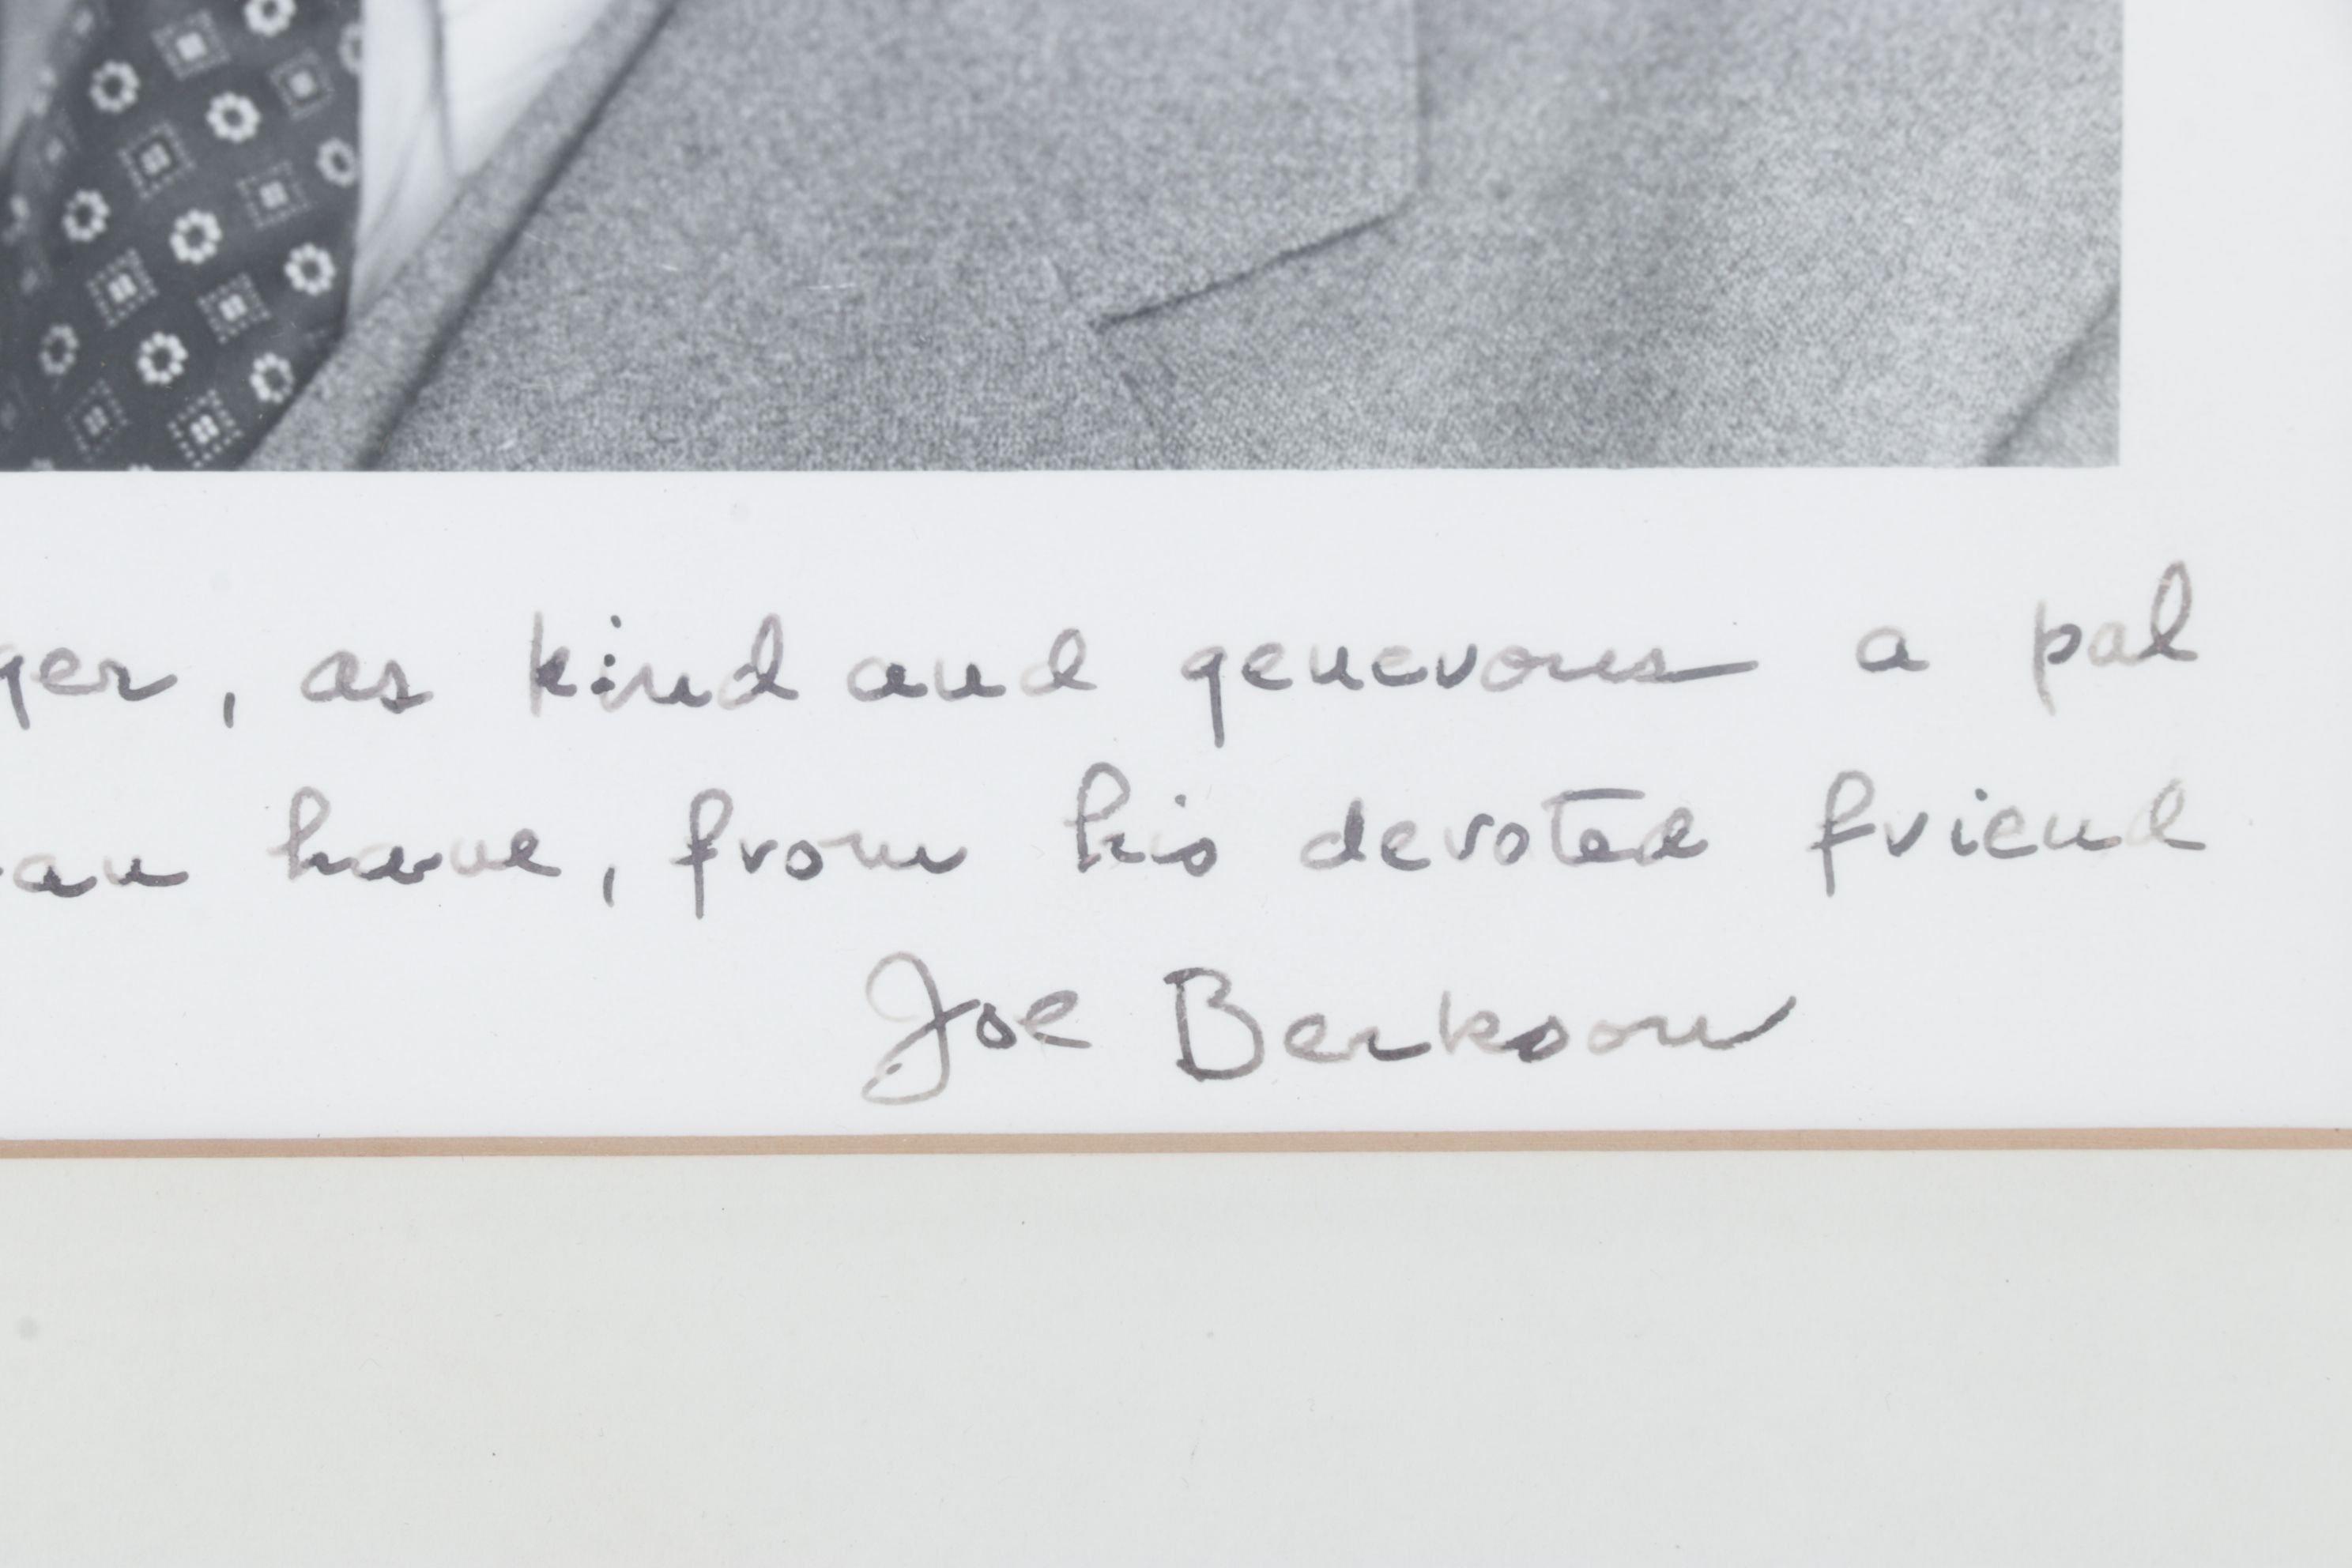 ger, as kind and generous a pal
an have, from his devoted friend
Joe Berkson